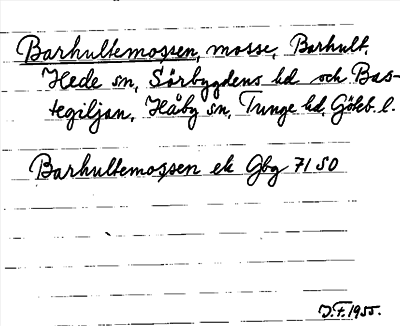 Barhultemossen, mosse, Barhult,
Hede sn, Sörbygdens hd och Bas-
tegiljan, Håby sn, Tunge hd, Göteb. l.
Barhultemossen ek Gbg 71 SO
J.F. 1955.